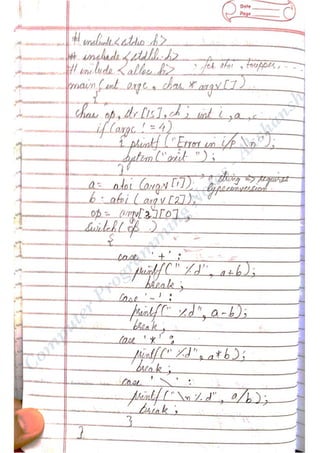 Date
Page
# include <stdio.h>
# include <stdlib.h>
# include <alloc.h>
main (int argc, char * argv [])
{
char op, str [15], ch ; int i, a,
if (argc != 4)
{ printf ("Error in i/p \n");
system ("exit");
}
a = atoi (argv [1]); string => requires
type conversion
b = atoi (argv [2]);
op = argv[3][0]
switch ( op )
{
case '+' :
printf (" %d", a+b);
break ;
case '-' :
printf (" %d", a-b);
break,
case '*' :
printf (" %d", a*b);
break ;
case '\' :
printf ("\n %d", a/b);
break ;
}
}
Computer Programming